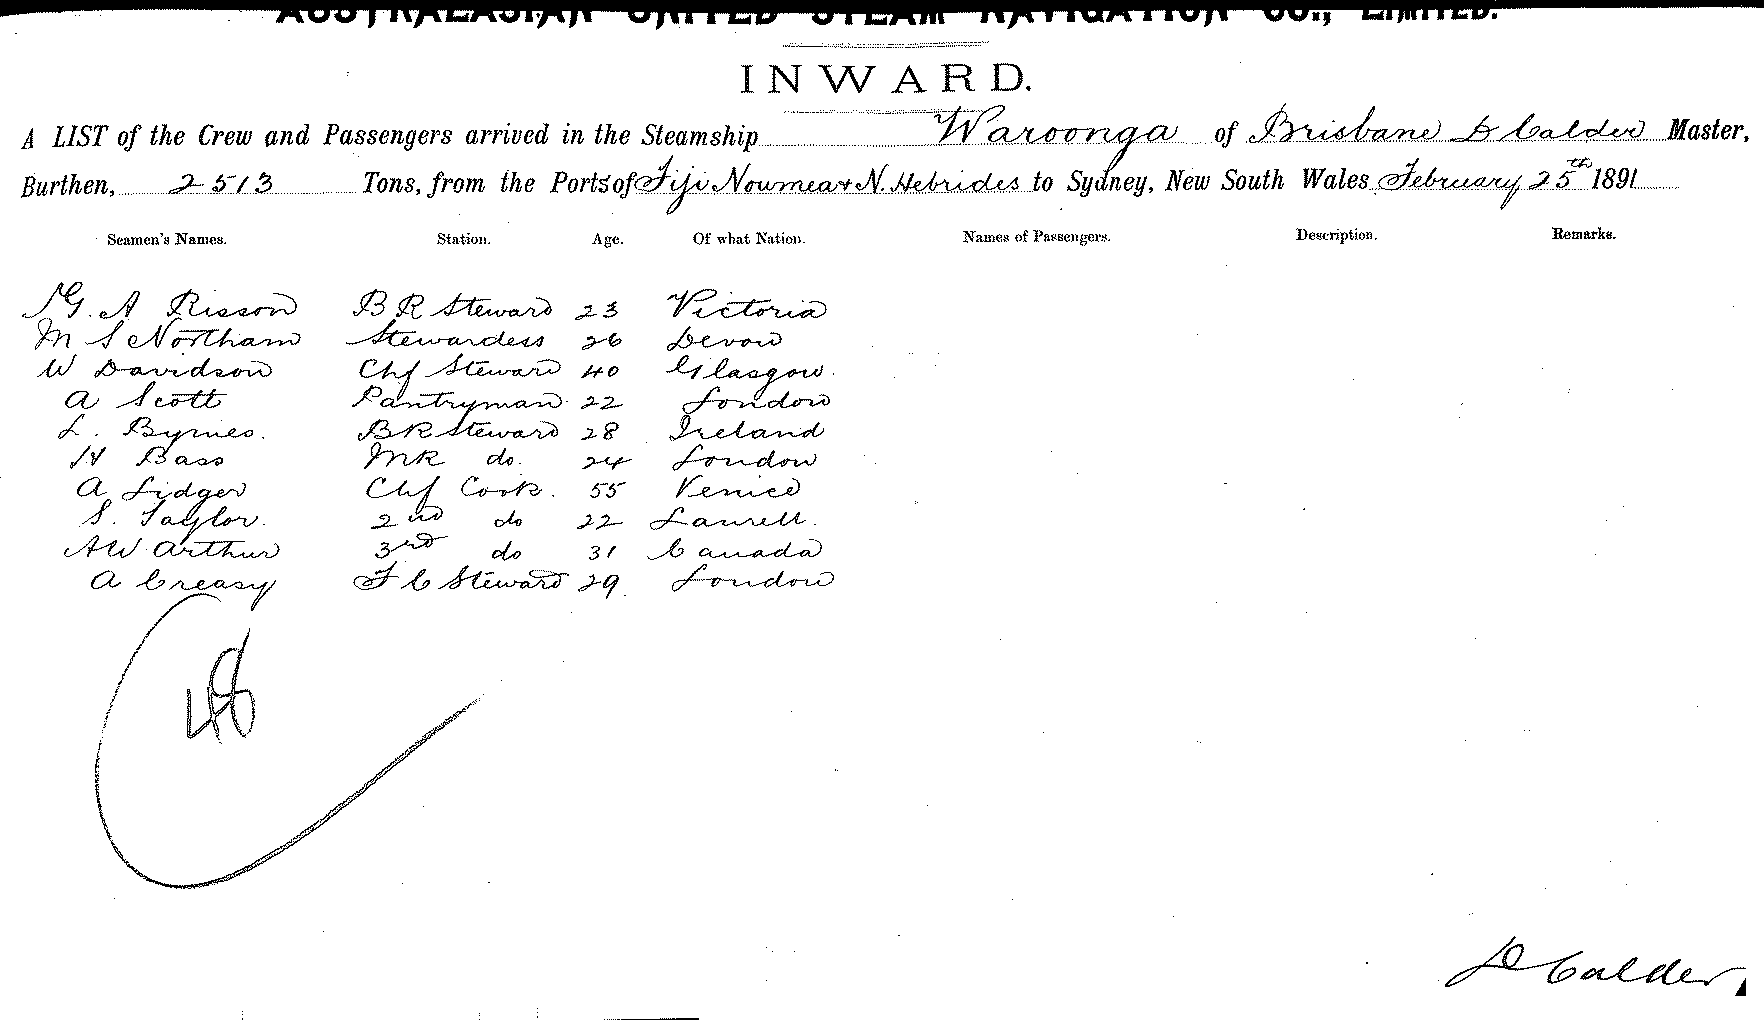 AUSTRALASIAN UNITED STEAM NAVIGATION CO., LIMITED.
INWARD.
A LIST of the Crew and Passengers arrived in the Steamship Waroonga of Brisbane D Calder Master,
Burthen, 2513 Tons, from the Ports of Fiji Noumea & N. Hebrides to Sydney, New South Wales February 25th 1891
Seamen's Names. Station. Age. Of what Nation. Names of Passengers. Description. Remarks.
G. A Risson B R Steward 23 Victoria
M S Northam Stewardess 26 Devon
W Davidson Chf Steward 40 Glasgow.
A Scott Pantryman 22 London
L. Byrnes. B R Steward 28 Ireland
H Bass MR do. 24 London
A Lidger Chf Cook. 55 Venice
S. Taylor. 2nd do 22
A W Arthur 3rd do 31 Canada
A Creasy F C Steward 29. London
48
D Calder